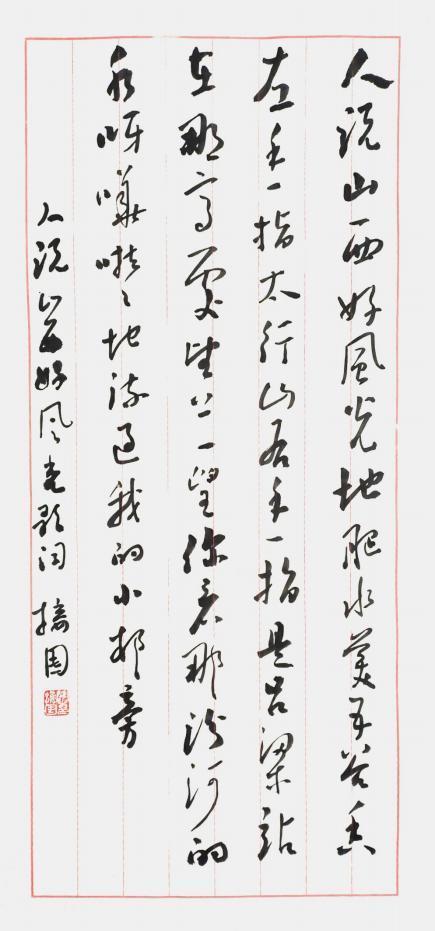 人说山西好風光地肥水美五谷香
左手一指太行山右手一指是吕梁站
在那高处望上一望你看那汾河的
水呀嘩啦々地流过我的小村旁
人说山西好风光歌词